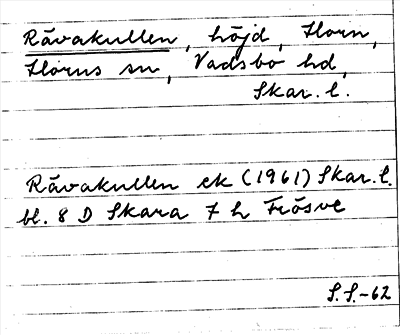 Rävakullen, höjd, Horn,
Horns sn, Vadsbo hd,
Skar. l.
Rävakullen ek (1961) Skar. l.
bl. 8 D Skara 7 h Frösve
S.S.-62